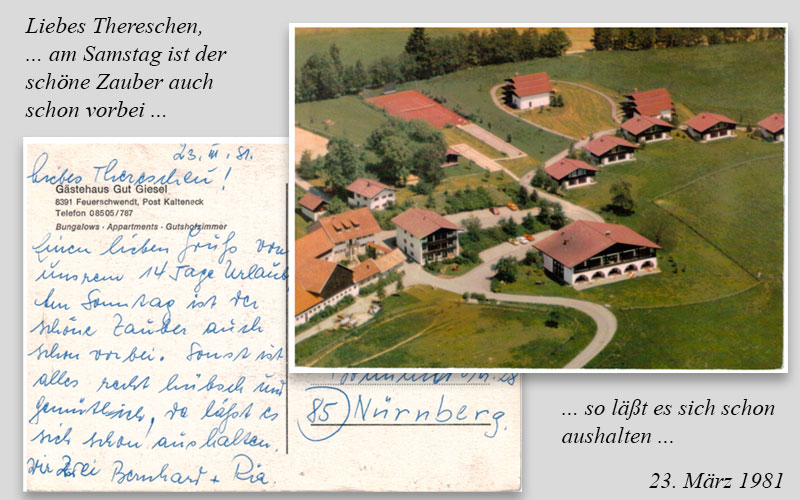 Liebes Thereschen,
... am Samstag ist der
schöne Zauber auch
schon vorbei ...
23. III. 81.
Liebes Thereschen!
Gästehaus Gut Giesel
8391 Feuerschwendt, Post Kalteneck
Telefon 08505/787
Bungalows · Appartments · Gutshofzimmer
Einen lieben Gruß von
unsrem 14 Tage Urlaub
Am Sonntag ist der
schöne Zauber auch
schon vorbei. Sonst ist
alles recht hübsch und
gemütlich, da läßt es
sich schon aushalten.
Wir Zwei Bernhard + Ria.
85 Nürnberg.
... so läßt es sich schon
aushalten ...
23. März 1981